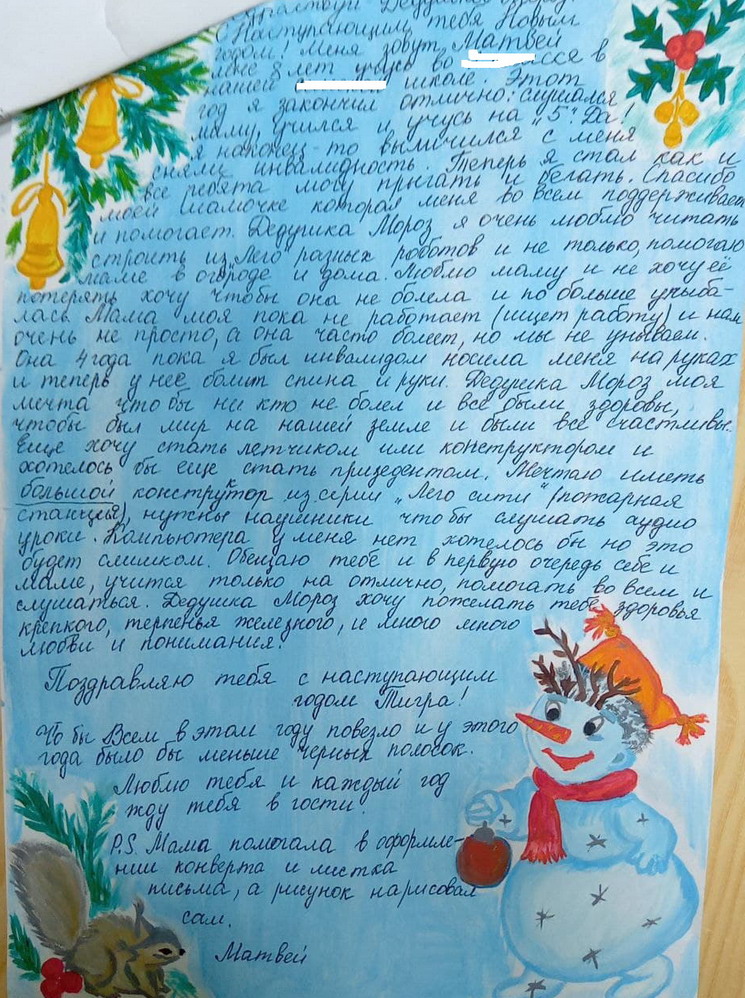 Здравствуй Дедушка
с Наступающим тебя Новым
годом! Меня зовут Матвей
мне 8 лет учусь во
нашей школе. Этот
год я закончил отлично: слушался
маму, учился и учусь на "5". Да!
я наконец-то вылечился с меня
сняли инвалидность. Теперь я стал как и
все ребята могу прыгать и бегать. Спасибо
моей мамочке которая меня во всем поддерживает
и помогает. Дедушка Мороз я очень люблю читать
строить из "Лего" разных роботов и не только, помогаю
маме в огороде и дома. Люблю маму и не хочу её
потерять хочу чтобы она не болела и по больше улыба-
лась. Мама моя пока не работает (ищет работу) и нам
очень не просто, а она часто болеет, но мы не унываем.
Она 4 года пока я был инвалидом носила меня на руках
и теперь у неё болит спина и руки. Дедушка Мороз моя
мечта что бы ни кто не болел и все были здоровы,
чтобы был мир на нашей земле и были все счастливы.
Еще хочу стать летчиком или конструктором и
хотелось бы еще стать призедентом. Мечтаю иметь
большой конструктор из серии "Лего сити" (пожарная
станция), нужны наушники что бы слушать аудио
уроки. Компьютера у меня нет хотелось бы но это
будет слишком. Обещаю тебе и в первую очередь себе и
маме, учится только на отлично, помогать во всем и
слушаться. Дедушка Мороз хочу пожелать тебе здоровья
крепкого, терпенья железного, и много много
любви и понимания!
Поздравляю тебя с наступающим
годом Тигра!
Что бы Всем в этом году повезло и у этого
года было бы меньше черных полосок.
Люблю тебя и каждый год
жду тебя в гости.
P.S. Мама помогала в оформле-
нии конверта и листка
письма, а рисунок нарисовал
сам.
Матвей